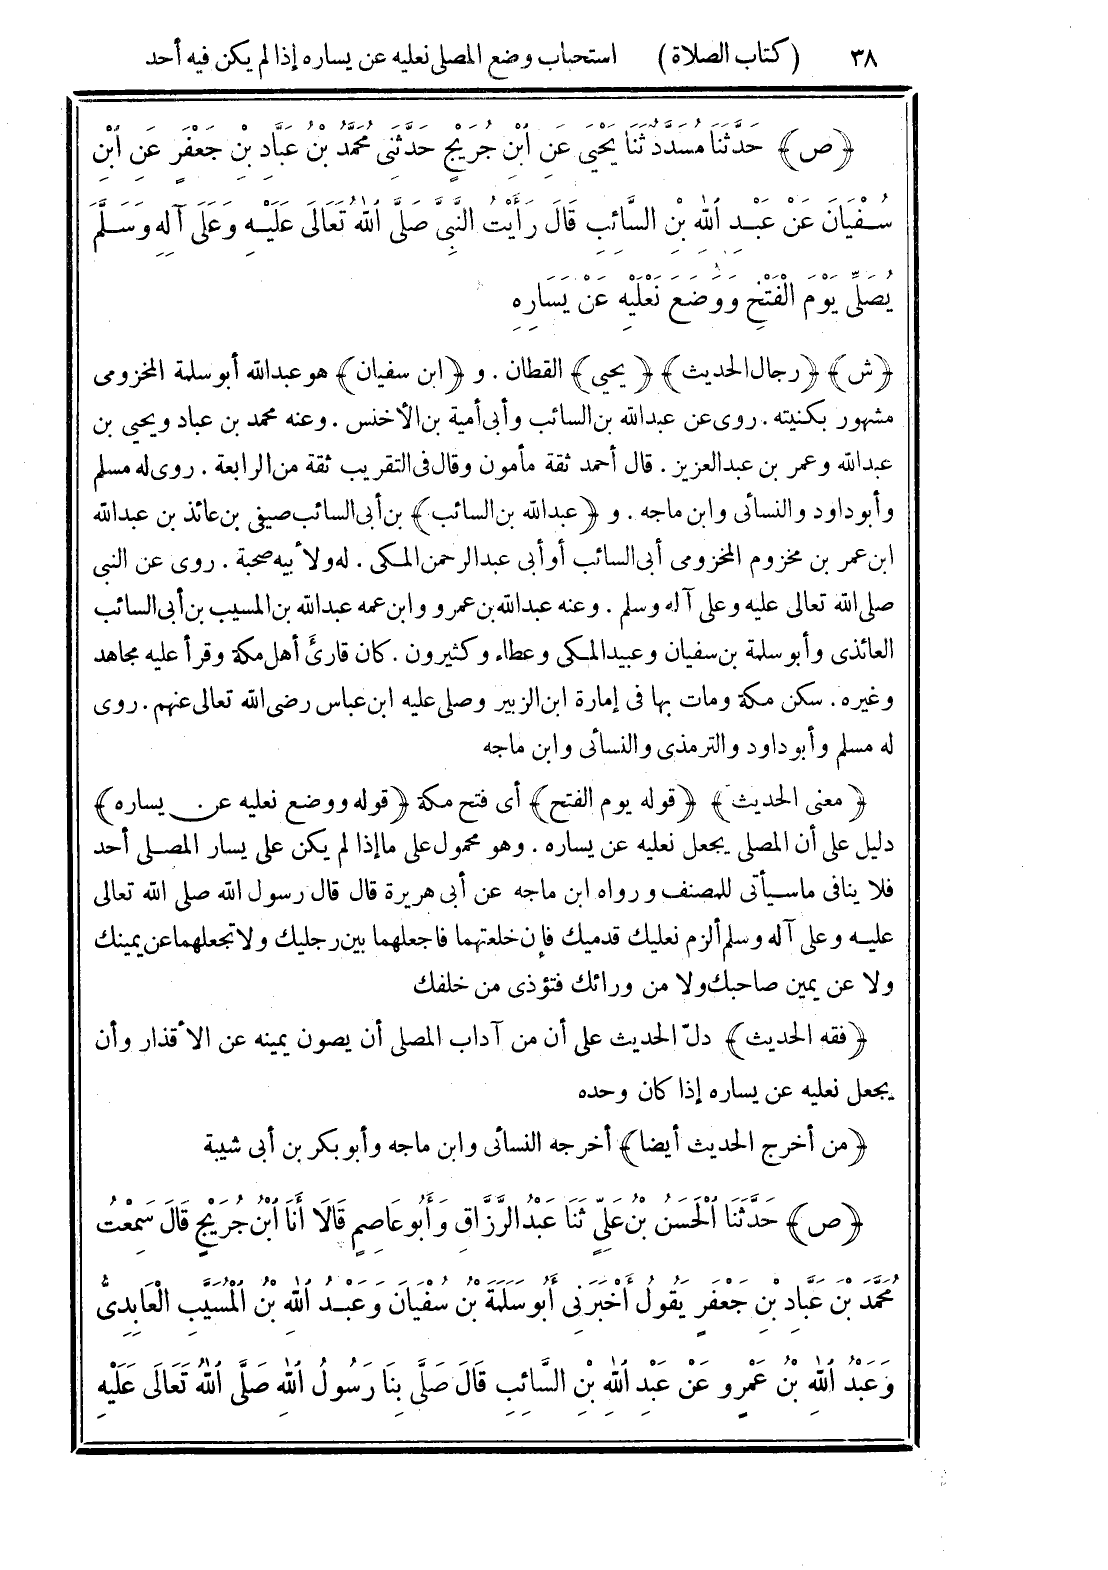 ٣٨ (كتاب الصلاة) استحباب وضع المصلى نعليه عن يساره إذا لم يكن فيه أحد
﴿ص﴾ حَدَّثَنَا مُسَدَّدٌ ثَنَا يَحْيَى عَنِ ابْنِ جُرَيْجٍ حَدَّثَنِى مُحَمَّدُ بْنُ عَبَّادِ بْنِ جَعْفَرٍ عَنِ ابْنِ
سُفْيَانَ عَنْ عَبْدِ اللهِ بْنِ السَّائِبِ قَالَ رَأَيْتُ النَّبِىَّ صَلَّى اللهُ تَعَالَى عَلَيْهِ وَعَلَى آلِهِ وَسَلَّمَ
يُصَلِّى يَوْمَ الْفَتْحِ وَوَضَعَ نَعْلَيْهِ عَنْ يَسَارِهِ
﴿ش﴾ ﴿رجال الحديث﴾ ﴿يحيى﴾ القطان . و ﴿ابن سفيان﴾ هو عبدالله أبو سلمة المخزومى
مشهور بكنيته . روى عن عبدالله بن السائب وأبى أمية بن الأخنس . وعنه محمد بن عباد ويحيى بن
عبدالله وعمر بن عبدالعزيز . قال أحمد ثقة مأمون وقال فى التقريب ثقة من الرابعة . روى له مسلم
وأبو داود والنسائى وابن ماجه . و ﴿عبدالله بن السائب﴾ بن أبى السائب صيفى بن عائذ بن عبدالله
ابن عمر بن مخزوم المخزومى أبى السائب أو أبى عبدالرحمن المكى . له ولأبيه صحبة . روى عن النبى
صلى الله تعالى عليه وعلى آله وسلم . وعنه عبدالله بن عمرو وابن عمه عبدالله بن المسيب بن أبى السائب
العائذى وأبو سلمة بن سفيان وعبيد المكى وعطاء وكثيرون . كان قارئ أهل مكة وقرأ عليه مجاهد
وغيره . سكن مكة ومات بها فى إمارة ابن الزبير وصلى عليه ابن عباس رضى الله تعالى عنهم . روى
له مسلم وأبو داود والترمذى والنسائى وابن ماجه
﴿معنى الحديث﴾ ﴿قوله يوم الفتح﴾ أى فتح مكة ﴿قوله ووضع نعليه عن يساره﴾
دليل على أن المصلى يجعل نعليه عن يساره . وهو محمول على ما إذا لم يكن على يسار المصلى أحد
فلا ينافى ماسيأتى للمصنف ورواه ابن ماجه عن أبى هريرة قال قال رسول الله صلى الله تعالى
عليه وعلى آله وسلم ألزم نعليك قدميك فإن خلعتهما فاجعلهما بين رجليك ولا تجعلهما عن يمينك
ولا عن يمين صاحبك ولا من ورائك فتؤذى من خلفك
﴿فقه الحديث﴾ دلّ الحديث على أن من آداب المصلى أن يصون يمينه عن الأقذار وأن
يجعل نعليه عن يساره إذا كان وحده
﴿من أخرج الحديث أيضا﴾ أخرجه النسائى وابن ماجه وأبو بكر بن أبى شيبة
﴿ص﴾ حَدَّثَنَا الْحَسَنُ بْنُ عَلِىٍّ ثَنَا عَبْدُ الرَّزَّاقِ وَأَبُو عَاصِمٍ قَالَا أَنَا ابْنُ جُرَيْجٍ قَالَ سَمِعْتُ
مُحَمَّدَ بْنَ عَبَّادِ بْنِ جَعْفَرٍ يَقُولُ أَخْبَرَنِى أَبُو سَلَمَةَ بْنُ سُفْيَانَ وَعَبْدُ اللهِ بْنُ الْمُسَيَّبِ الْعَابِدِىُّ
وَعَبْدُ اللهِ بْنُ عَمْرٍو عَنْ عَبْدِ اللهِ بْنِ السَّائِبِ قَالَ صَلَّى بِنَا رَسُولُ اللهِ صَلَّى اللهُ تَعَالَى عَلَيْهِ